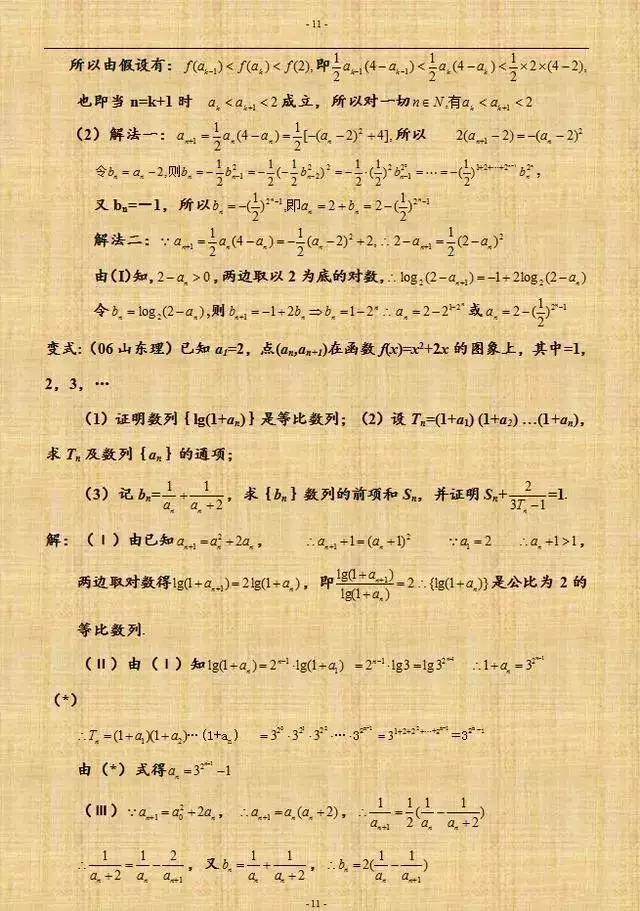 - 11 -
所以由假设有: f(a_{k-1})<f(a_k)<f(2),即\frac{1}{2}a_{k-1}(4-a_{k-1})<\frac{1}{2}a_k(4-a_k)<\frac{1}{2}×2×(4-2),
也即当 n=k+1 时 a_k<a_{k+1}<2 成立，所以对一切 n∈N,有a_k<a_{k+1}<2
(2) 解法一: a_{n+1}=\frac{1}{2}a_n(4-a_n)=\frac{1}{2}[-(a_n-2)^2+4],所以 2(a_{n+1}-2)=-(a_n-2)^2
令b_n=a_n-2,则b_n=-\frac{1}{2}b_{n-1}^2=-\frac{1}{2}(-\frac{1}{2}b_{n-2}^2)^2=-\frac{1}{2}·(\frac{1}{2})^2b_{n-1}^{2^2}=⋯=-(\frac{1}{2})^{1+2+⋯+2^{n-1}}b_n^{2^n},
又 b_n=-1，所以b_n=-(\frac{1}{2})^{2^n-1},即a_n=2+b_n=2-(\frac{1}{2})^{2^n-1}
解法二: ∵a_{n+1}=\frac{1}{2}a_n(4-a_n)=-\frac{1}{2}(a_n-2)^2+2,∴2-a_{n+1}=\frac{1}{2}(2-a_n)^2
由(I)知，2-a_n>0，两边取以 2 为底的对数，∴log_2(2-a_{n+1})=-1+2log_2(2-a_n)
令b_n=log_2(2-a_n),则b_{n+1}=-1+2b_n⇒b_n=1-2^n∴a_n=2-2^{1-2^n}或a_n=2-(\frac{1}{2})^{2^n-1}
变式:(06 山东理) 已知 a_1=2，点(a_n,a_{n+1})在函数 f(x)=x^2+2x 的图象上，其中=1,
2，3，…
(1) 证明数列{lg(1+a_n)}是等比数列；(2) 设 T_n=(1+a_1) (1+a_2) …(1+a_n),
求 T_n 及数列{a_n}的通项；
(3) 记 b_n=\frac{1}{a_n}+\frac{1}{a_n+2}，求{b_n}数列的前项和 S_n，并证明 S_n+\frac{2}{3T_n-1}=1.
解: (Ⅰ由已知a_{n+1}=a_n^2+2a_n， ∴a_{n+1}+1=(a_n+1)^2 ∵a_1=2 ∴a_n+1>1，
两边取对数得lg(1+a_{n+1})=2lg(1+a_n)，即\frac{lg(1+a_{n+1})}{lg(1+a_n)}=2∴{lg(1+a_n)}是公比为 2 的
等比数列.
(Ⅱ) 由 (Ⅰ) 知lg(1+a_n)=2^{n-1}·lg(1+a_1) =2^{n-1}·lg3=lg3^{2^{n-1}} ∴1+a_n=3^{2^{n-1}}
(*)
∴T_n=(1+a_1)(1+a_2)…(1+a_n) =3^{2^0}·3^{2^1}·3^{2^2}·…·3^{2^{n-1}}=3^{1+2+2^2+…+2^{n-1}}=3^{2^n-1}
由 (*) 式得a_n=3^{2^{n-1}}-1
(Ⅲ) ∵a_{n+1}=a_0^2+2a_n，∴a_{n+1}=a_n(a_n+2)，∴\frac{1}{a_{n+1}}=\frac{1}{2}(\frac{1}{a_n}-\frac{1}{a_n+2})
∴\frac{1}{a_n+2}=\frac{1}{a_n}-\frac{2}{a_{n+1}}，又b_n=\frac{1}{a_n}+\frac{1}{a_n+2}，∴b_n=2(\frac{1}{a_n}-\frac{1}{a_{n+1}})
- 11 -